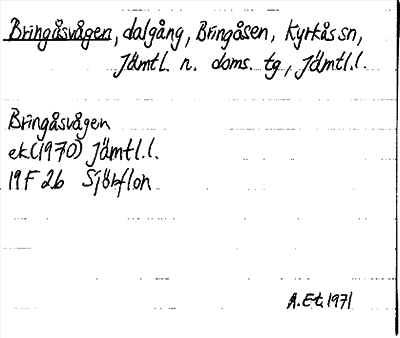 Bringåsvågen, dalgång, Bringåsen, Kyrkås sn,
Jämtl. n. doms. tg, Jämtl.l.
Bringåsvågen
ek.(1970) Jämtl.l.
19F 2b Sjörflon
A.Et. 1971